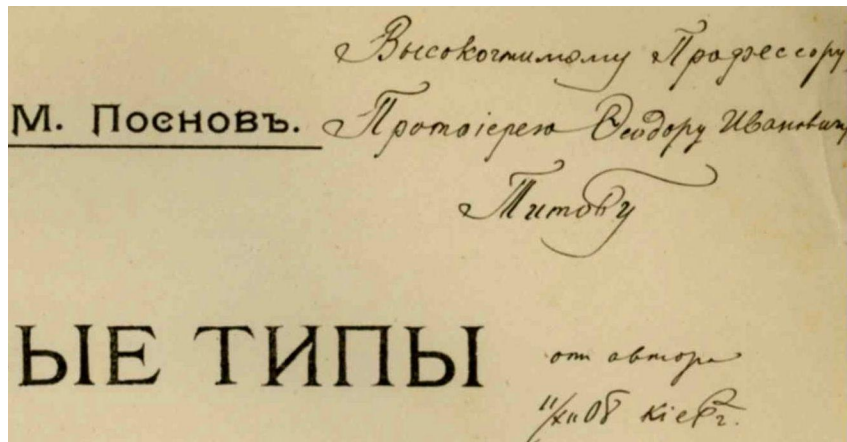 Высокочтимому Профессору,
М. Посновъ.
Протоіерею Ѳеодору Ивановичу
Титову
ЫЕ ТИПЫ
от автора
11/XII 08 Кіевъ г.